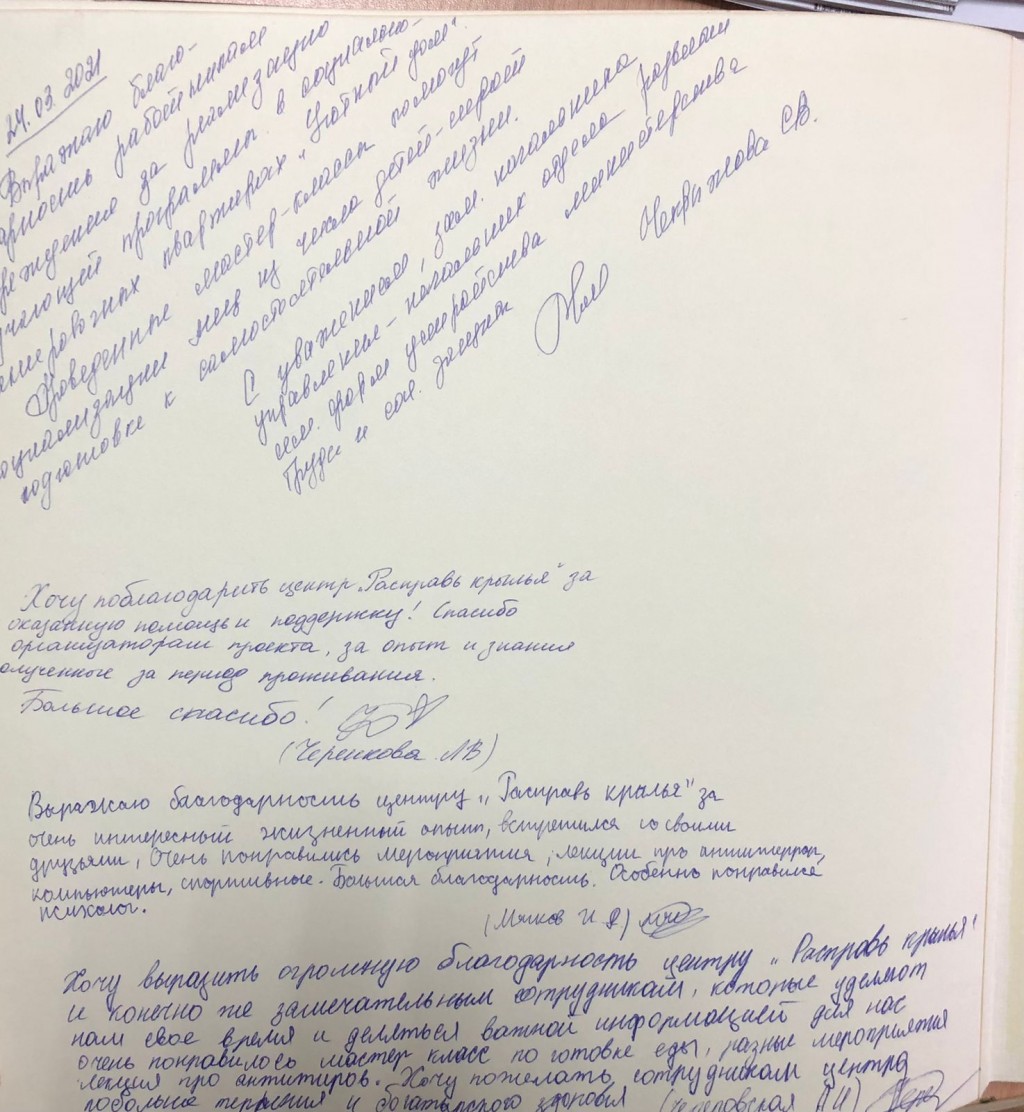 24.03.2021
Выражаю благо-
дарность работникам
учреждения за реализацию
обучающей программы в социально-
тренировочных квартирах "Уютный дом".
Проведенные мастер-классы помогут
социализации лиц из числа детей-сирот
подготовке к самостоятельной жизни.
С уважением, зам. начальника
управления - начальник отдела развития
сем. форм устройства министерства
труда и соц. защиты
Некрылова С.В.
Хочу поблагодарить центр „Расправь крылья" за
оказанную помощь и поддержку! Спасибо
организаторам проекта, за опыт и знания
олученные за период проживания.
Большое спасибо!
(Черенкова Л В)
Выражаю благодарность центру „Расправь крылья" за
очень интересный жизненный опыт, встретился со своими
друзьями, Очень понравились мероприятия, лекции про антитеррор,
компьютеры, спортивное. Большая благодарность. Особенно понравился
психолог.
(Мячков И Я)
Хочу выразить огромную благодарность центру „Расправь крылья"
и конечно же замечательным сотрудникам, которые уделяют
нам свое время и деляться важной информацией для нас
очень понравилось мастер класс по готовке еды, разные мероприятия
лекция про антитиров. Хочу пожелать сотрудникам центра
побольше терпения и богатырского здоровья